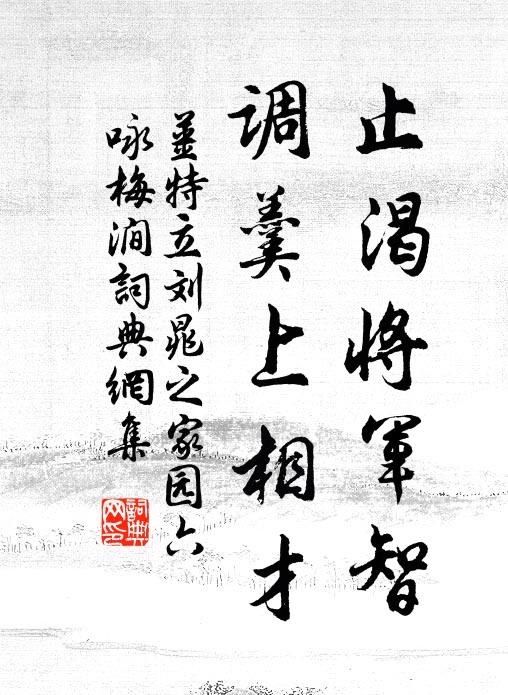 止渴将军智
调羹上相才
姜特立刘晁之家园六
咏梅涧词典網集
詞典網印